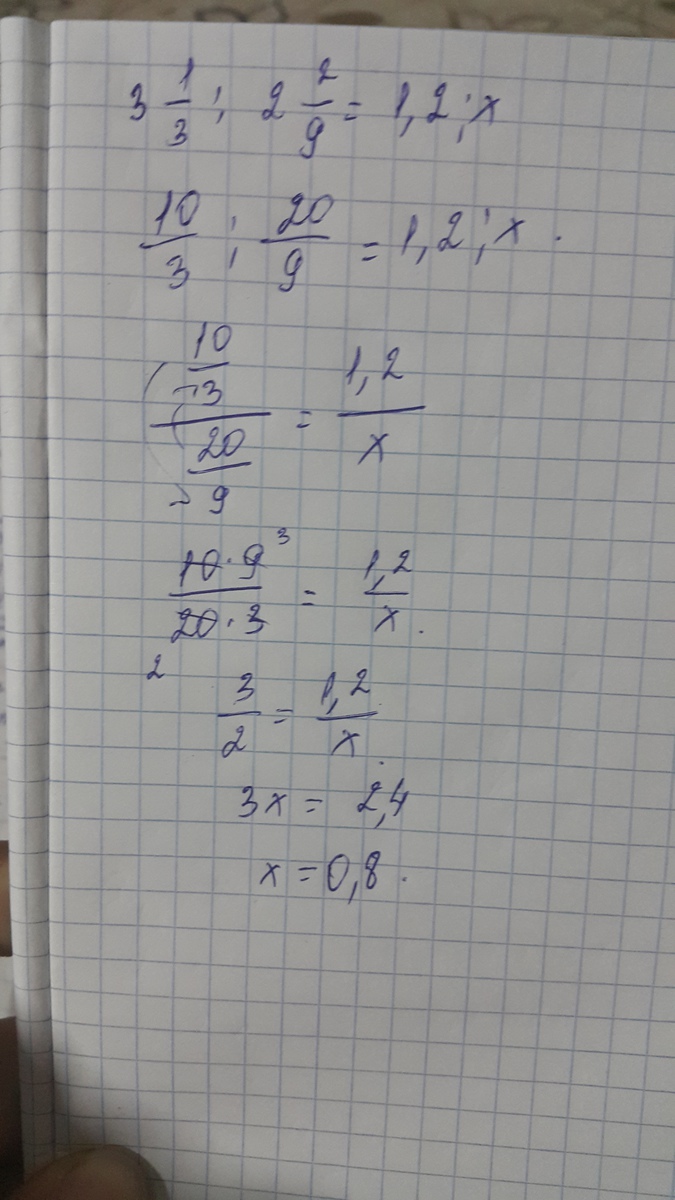 3 1/3 : 2 2/9 = 1,2 : x
10/3 : 20/9 = 1,2 : x .
(10/3)/(20/9) = 1,2/x
10·9 3/20·3 2 = 1,2/x .
3/2 = 1,2/x .
3x = 2,4
x = 0,8 .